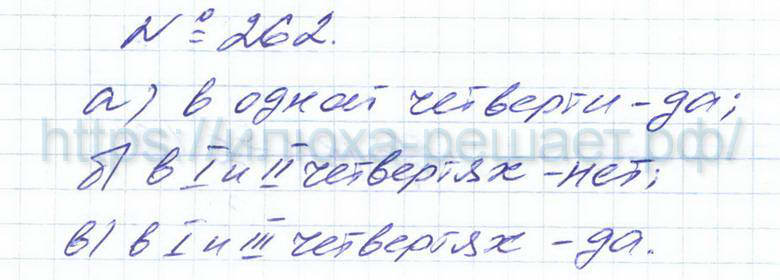 № 262.
а) в одной четверти - да;
https://илюха-решает.рф/
б) в I и II четвертях - нет;
в) в I и III четвертях - да.